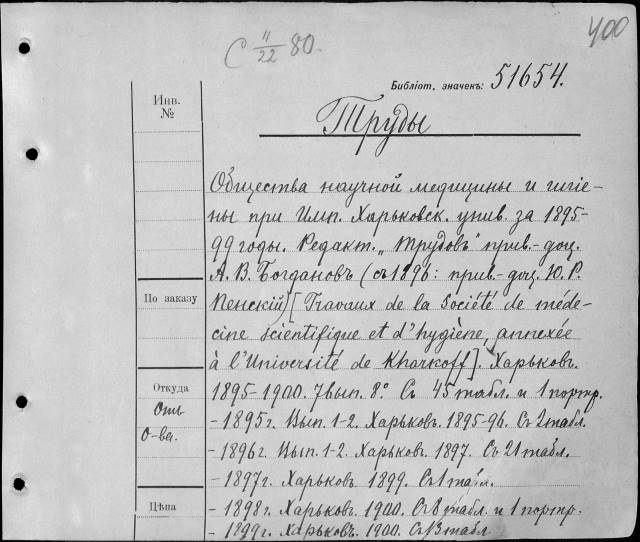 С 11/22 80.
400
Библіот. значекъ: 51654.
Инв. №
Труды
Общества научной медицины и гигіе-
ны при Имп. Харьковск. унив. за 1895-
99 годы. Редакт. „Трудовъ" прив.-доц.
А. В. Богдановъ (съ 1896: прив.-доц. Ю. Р.
По заказу
Пенскій) [Travaux de la Société de méde-
cine scientifique et d'hygiène, annexée
à l'Université de Kharkoff]. Харьковъ.
Откуда
1895-1900. 7 вып. 8°. Съ 45 табл. и 1 портр.
Отъ
- 1895 г. Вып. 1-2. Харьковъ. 1895-96. Съ 2 табл.
О-ва.
- 1896 г. Вып. 1-2. Харьковъ. 1897. Съ 21 табл.
- 1897 г. Харьковъ. 1899. Съ 1 табл.
Цѣна
- 1898 г. Харьковъ. 1900. Съ 8 табл. и 1 портр.
- 1899 г. Харьковъ. 1900. Съ 13 табл.